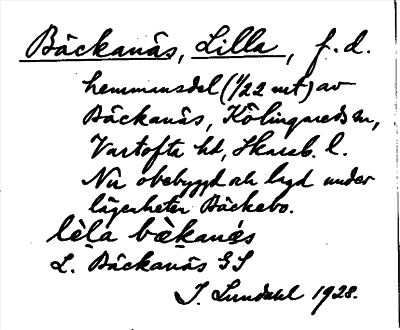 Bäckanäs, Lilla, f.d.
hemmansdel (1/22 mt) av
Bäckanäs, Kölingareds sn,
Vartofta hd, Skarab. l.
Nu obebyggd och lyd under
lägenheten Bäckebo.
lèla bækanæs
L. Bäckanäs GS
J. Lundahl 1928.